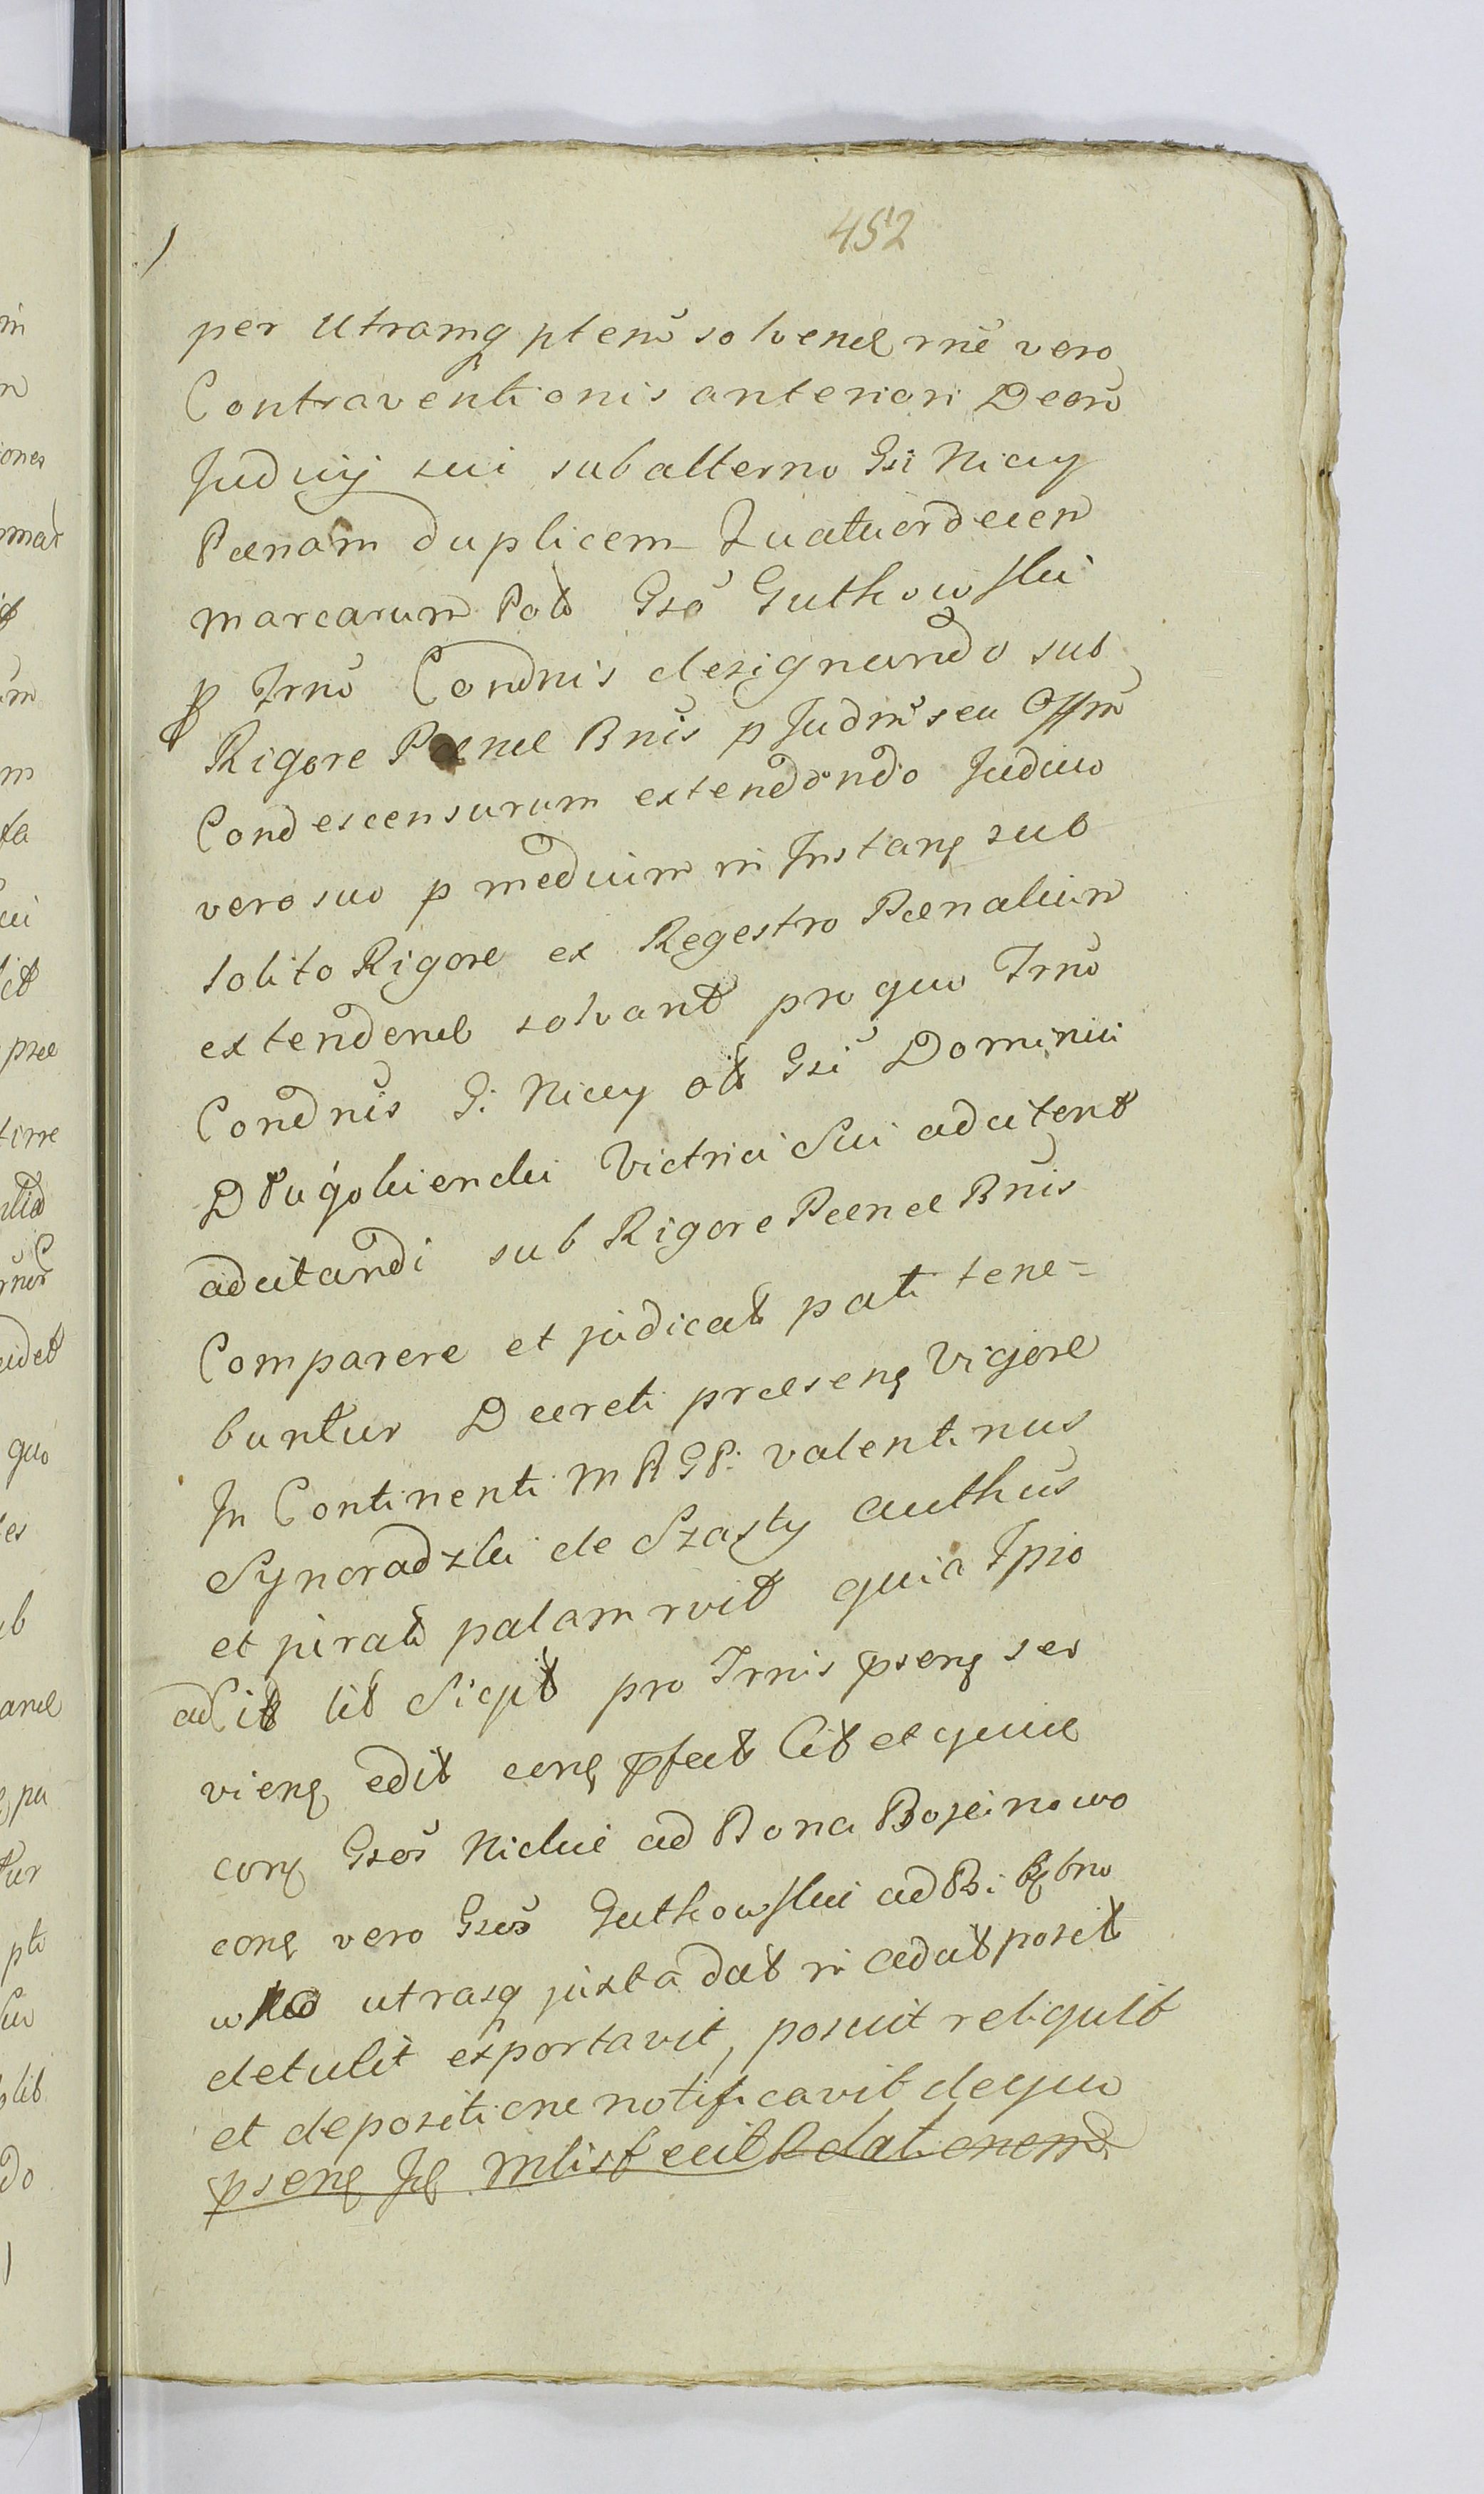 452
per Utramq ptem solvend rne vero
Contraventionis anteriori Decro
Judicij sui subalterno Gsi Nicey
Pænam duplicem Quatuordecem
marcarum Pol Gso Gutkowski
p Trno Condnis designando sub
Rigore Pænæ Bnis p Judm seu Offm
Condescensurum extendendo Judicio
vero suo p medium in Instanq sub
solito Rigore ex Regestro Pænalium
extendend solvant pro quo Trno
Condnis G. Nicey ob Gsi Dominici
Długokiencki Victrici Sui adcitent
adcitandi sub Rigore Pænæ Bnis
Comparere et judicat pati tene=
buntur Decreti præsenq Vigore
In Continenti M R G P. Valentinus
Synoradzki de Szasty authus
et jurat palam rvit quia Ipso
ad Cit lit Sicpt pro Trnis psenq ser
vienq edit eorq pfat Cit et quid
corq Gsos Nickie ad Bona Bojeinowo
eorq vero Gsos Gutkowskie ad B.
utrasq juxta dat in cedat posit
detulit exportavit, posuit reliquit
et depositione notificavit de quo
psenq Jq Mlis fecit Rdationem